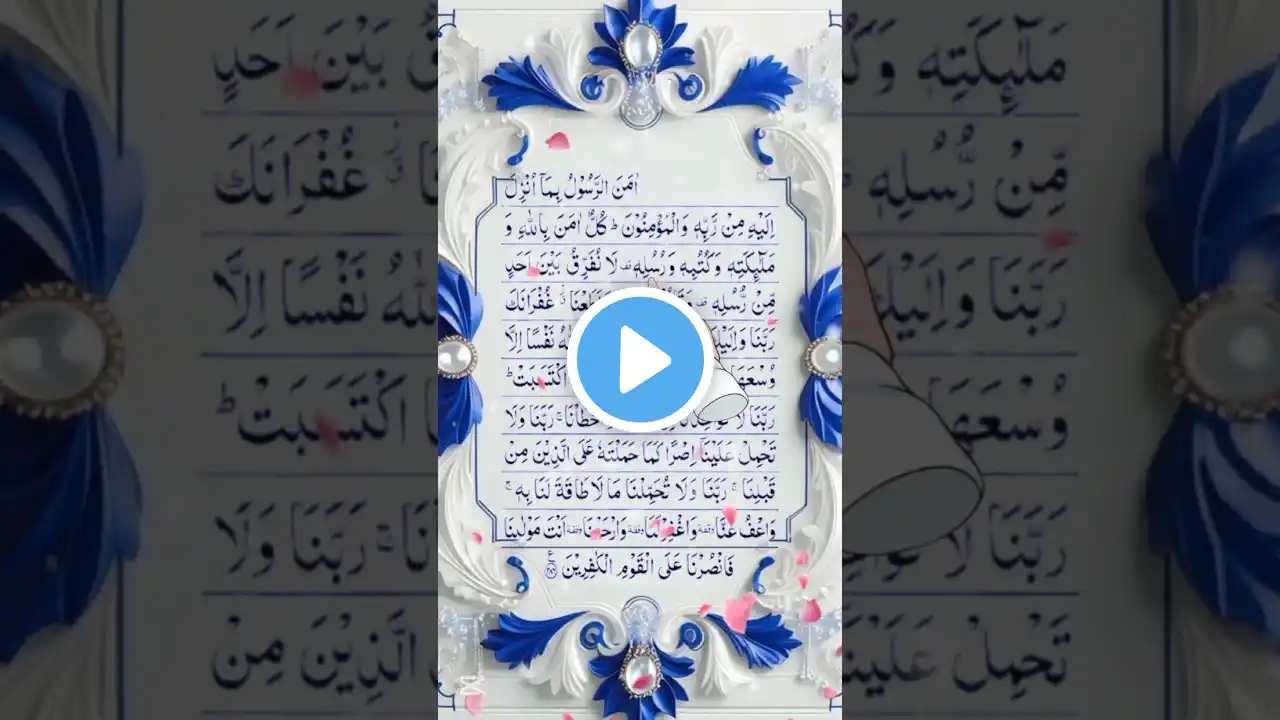 اٰمَنَ الرَّسُوْلُ بِمَاۤ اُنْزِلَ
اِلَيْهِ مِنْ رَّبِّهٖ وَالْمُؤْمِنُوْنَ ؕ كُلٌّ اٰمَنَ بِاللّٰهِ وَ
مَلٰٓئِكَتِهٖ وَكُتُبِهٖ وَرُسُلِهٖ ۟ لَا نُفَرِّقُ بَيْنَ اَحَدٍ
مِّنْ رُّسُلِهٖ ۟ غُفْرَانَكَ
رَبَّنَا وَاِلَيْكَ نَفْسًا اِلَّا
وُسْعَهَا اكْتَسَبَتْ ؕ
رَبَّنَا لَا رَبَّنَا وَلَا
تَحْمِلْ عَلَيْنَاۤ اِصْرًا كَمَا حَمَلْتَهٗ عَلَى الَّذِيْنَ مِنْ
قَبْلِنَا ۚ رَبَّنَا وَلَا تُحَمِّلْنَا مَا لَا طَاقَةَ لَنَا بِهٖ ۚ
وَاعْفُ عَنَّا وقفة وَاغْفِرْ لَنَا وقفة وَارْحَمْنَا وقفة اَنْتَ مَوْلٰىنَا
فَانْصُرْنَا عَلَى الْقَوْمِ الْكٰفِرِيْنَ